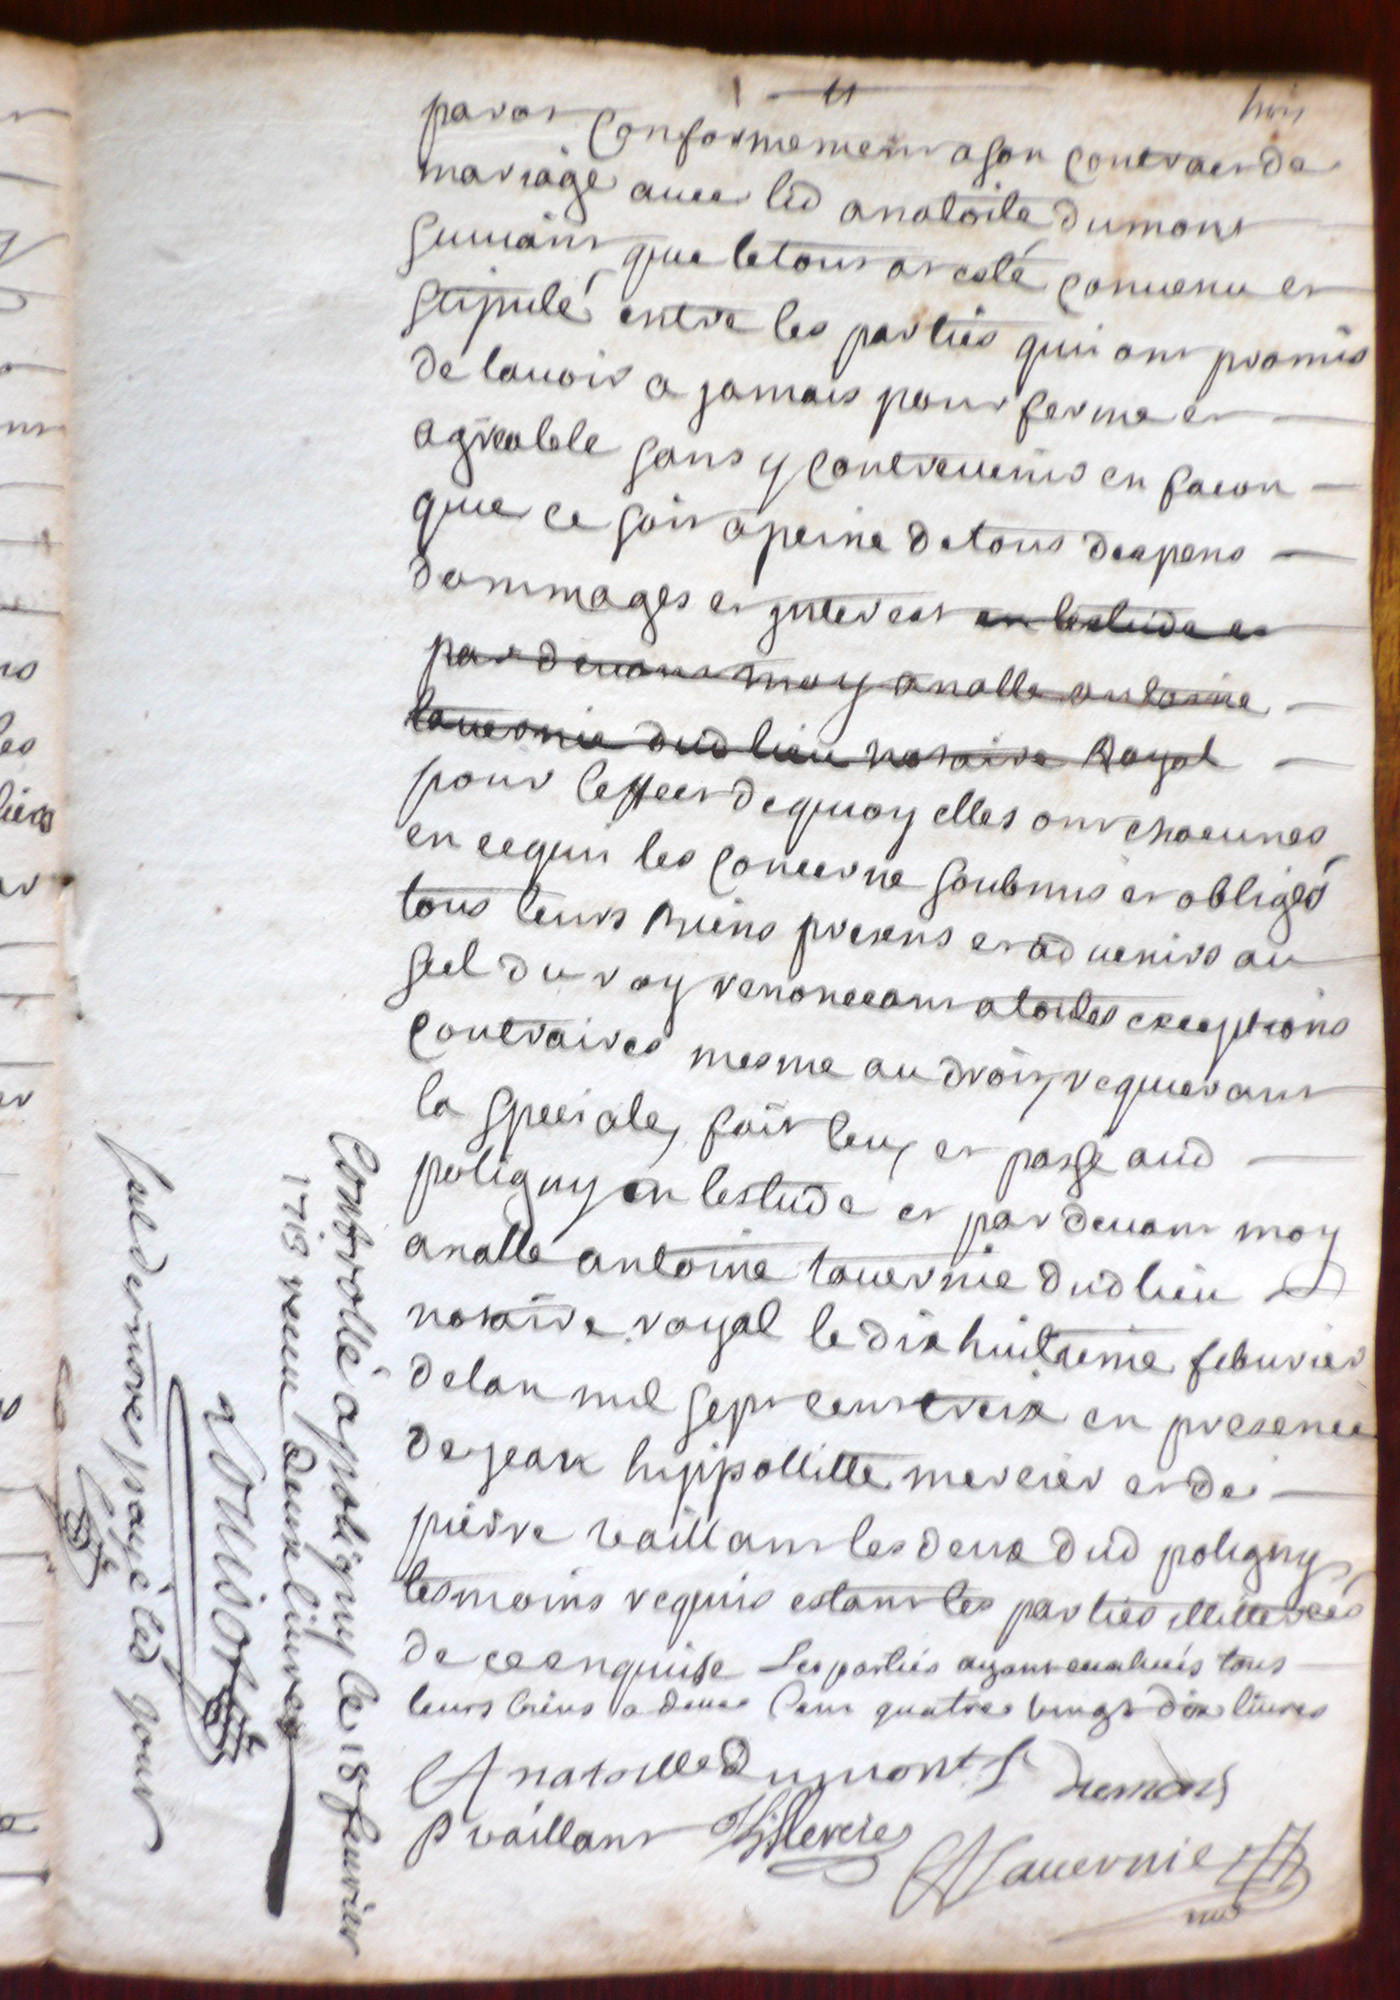 par at conformement a son contract de
mariage avec led anatoile dumont
suivant que le tout at esté convenu et
stipulé entre les parties qui ont promis
de lavoir a jamais pour ferme et
agreable sans y contrevenir en facon
que ce soit a peine de tous despens
dommages et interest en lestude et
par devant moy anatlle antoine
tavernie dud lieu notaire Royal
pour leffect de quoy elles ont chacunes
en ce qui les concerne soubmis et obligés
tous leurs biens presens et advenirs au
seel du roy renonceant a toutes exceptions
contraires mesme au droit requerant
la speciale, fait leu, et passé aud
poligny en lestude et par devant moy
anatlle antoine tavernie dud lieu
notaire royal le dix huitieme febvrier
de lan mil sept cent treize en presence
de jean hippollitte mercier et de
pierre vaillant les deux dud poligny
tesmoins requis estant les parties illitterées
de ce enquise Les parties ayant evaluées tous
leurs biens a deux cent quatre vingt dix livres
Anatoille Dumont dumont
P vaillant JHMercier
AATavernie
Controllé a poligny le 18 fevrier
1713 receu deux livres
seel et payé led jour